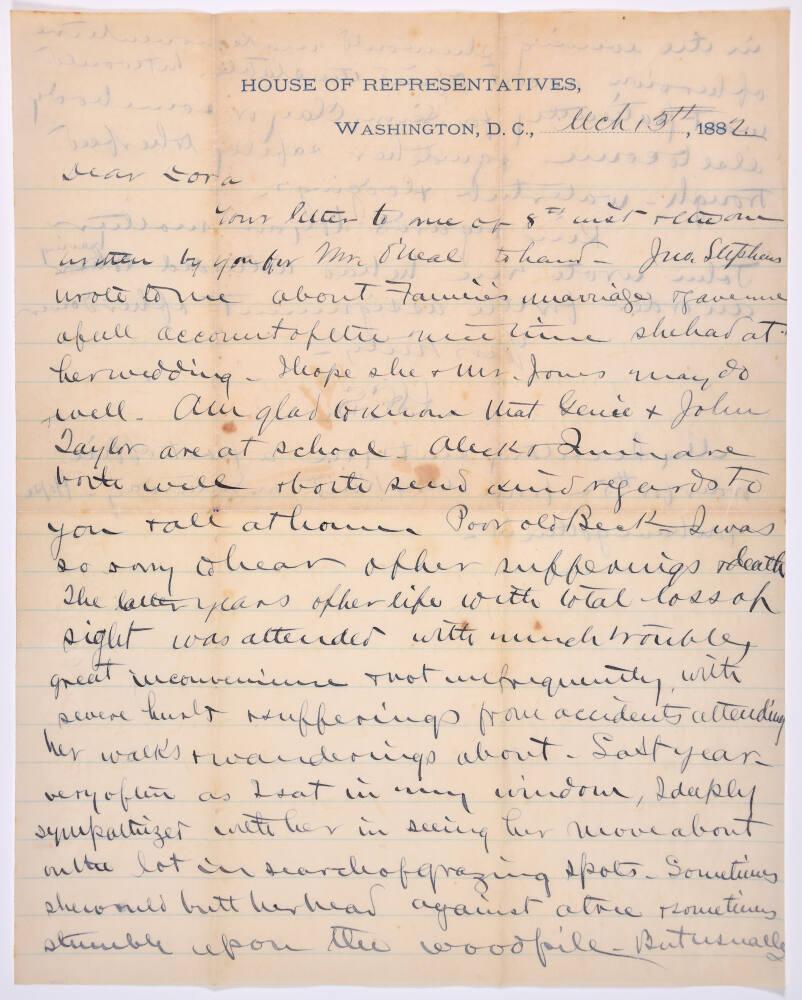 HOUSE OF REPRESENTATIVES,
WASHINGTON, D. C., Mch 13th, 1882
Dear Cora
Your letter to me of 8th inst & the one
written by you for Mr. O'Neal to hand - Jno. Stephens
wrote to me about Fannie's marriage & gave me
a full account of the nice time she had at
her wedding - I hope she & Mr. Jones may do
well. Am glad to know that Genie & John
Taylor are at school - Aleck & Quin are
both well & both send kind regards to
you & all at home. Poor old Beck - I was
so sorry to hear of her sufferings & death
The latter years of her life with total loss of
sight was attended with much trouble,
great inconvenience & not unfrequently, with
severe hurts & sufferings from accidents attending
her walks & wanderings about - Last year
very often as I sat in my window, I deeply
sympathized with her in seeing her move about
on the lot in search of grazing spots - Sometimes
she would butt her head against a tree & sometimes
stumble upon the woodpile - But usually